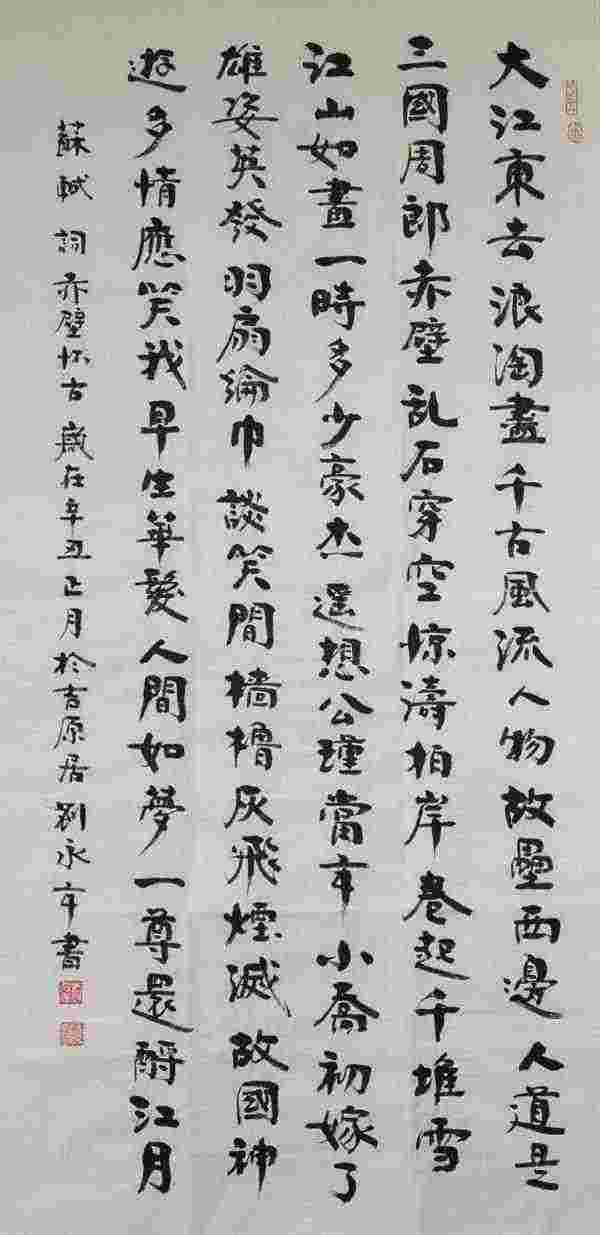 大江東去浪淘盡千古風流人物故壘西邊人道是
三國周郎赤壁乱石穿空惊濤拍岸卷起千堆雪
江山如畫一時多少豪杰遥想公瑾當年小喬初嫁了
雄姿英發羽扇綸巾談笑間檣櫓灰飛煙滅故國神
遊多情應笑我早生華髮人間如夢一尊還酹江月
蘇軾詞赤壁怀古歲在辛丑正月於吉原居劉永年書